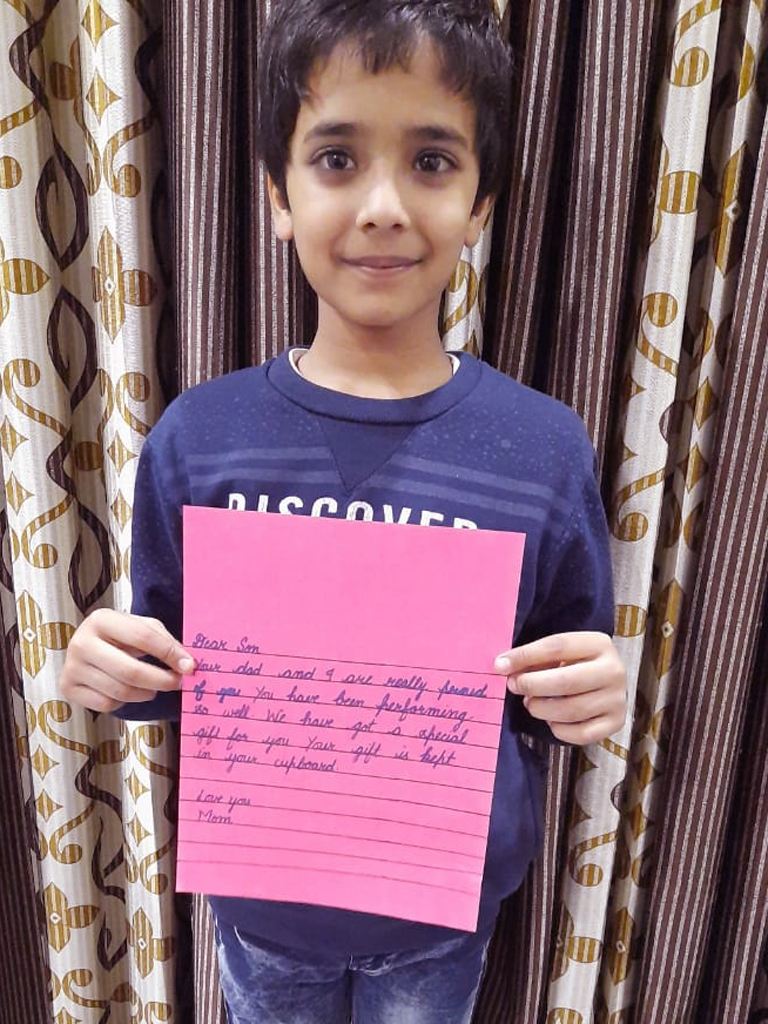 DISCOVER
Dear Son
Your dad and I are really proud
of you You have been performing
so well We have got a special
gift for you Your gift is kept
in your cupboard.
Love you
Mom